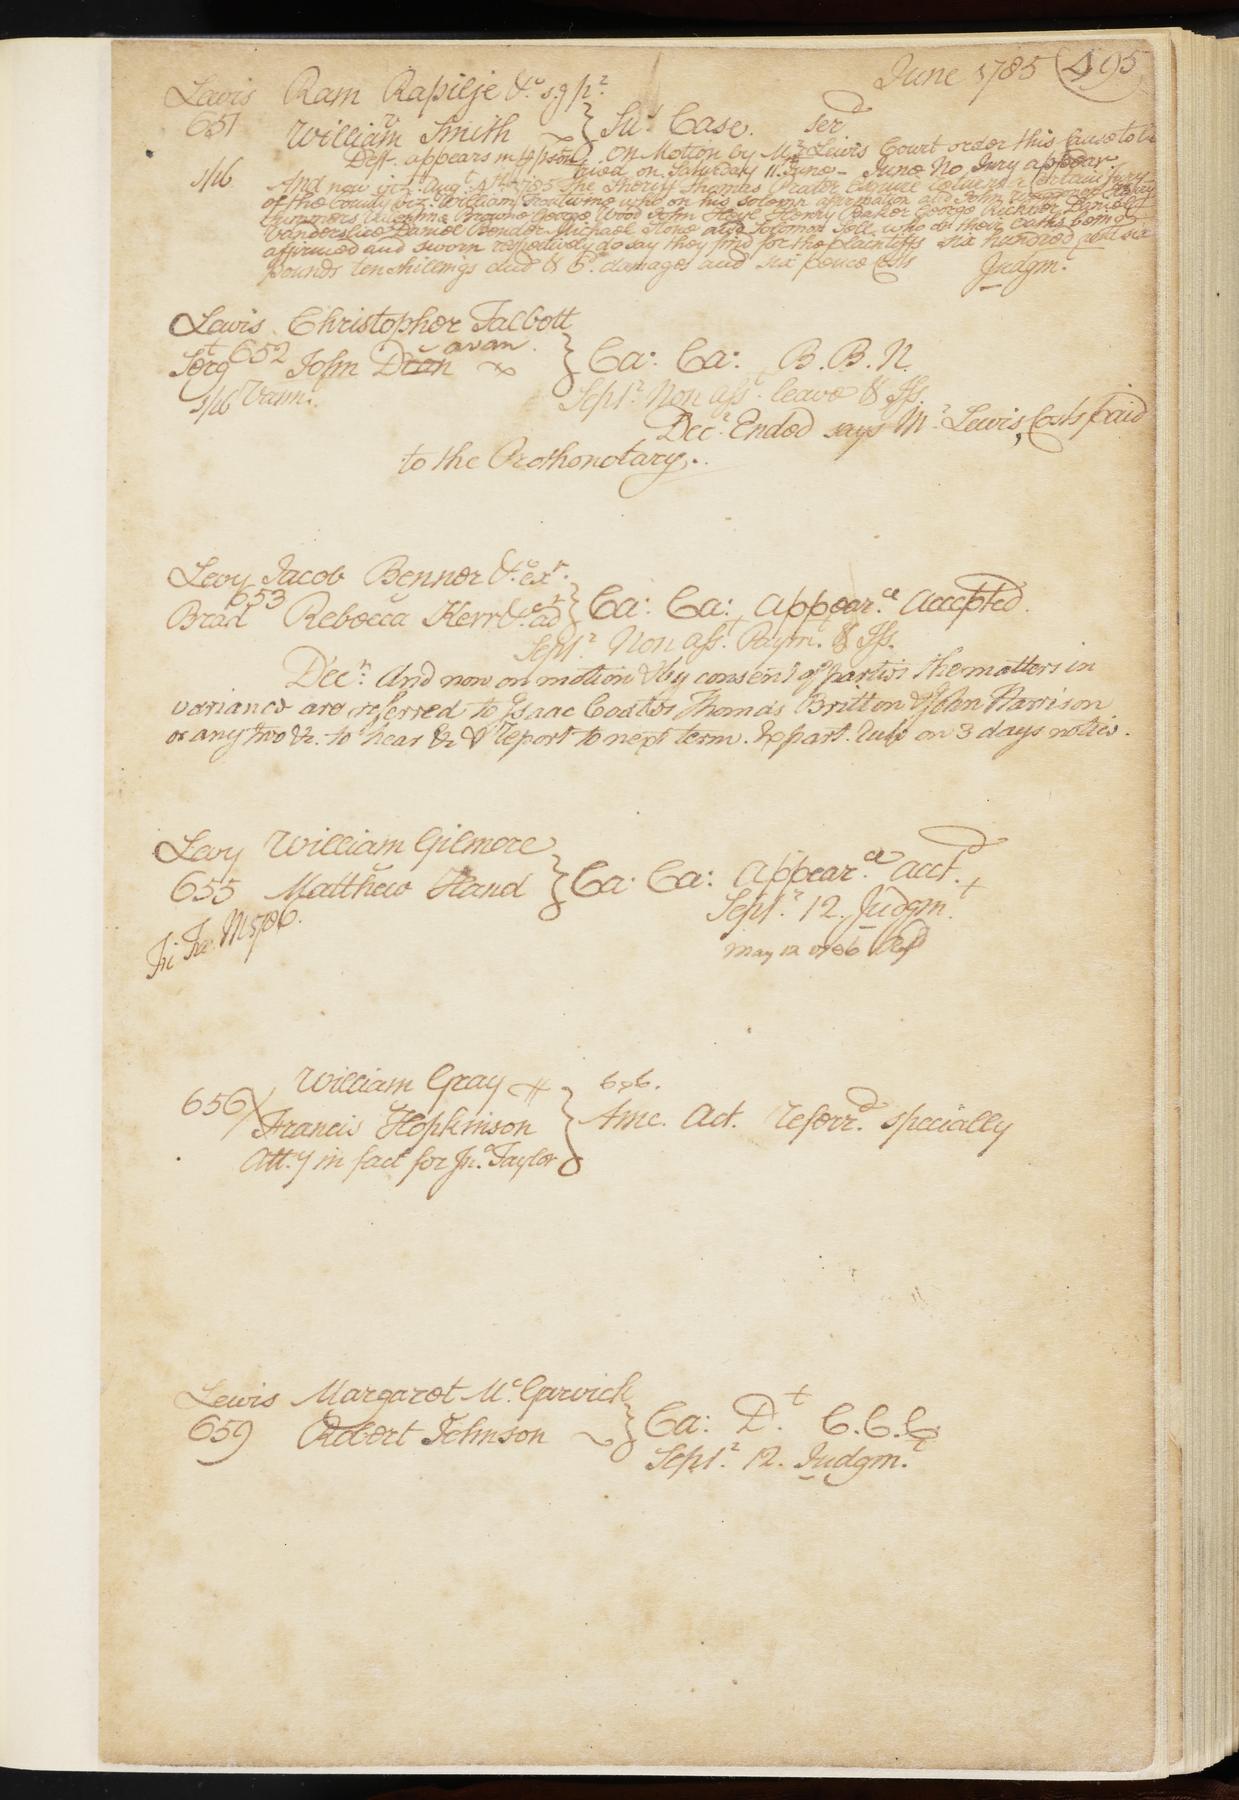 June 1785 (495
Lewis Ram Rapilje &c. s. g p.r
651 William Smith } Su. Case. ser.d
Deft. appears in p.pson. On Motion by Mr. Lewis Court order this Cause to be
1/16 tried on Saturday 11. June - June No Jury appear
And now viz: Aug.t 4th 1785 The Sheriff Thomas Procter Esquire returns a certain Jury
of the County viz. William Troutwine who on his solemn affirmation and John
Summers Valentine Browne George Wood John Haye Henry Parker George Rickner Daniel
Vanderslice Daniel Bender Michael Stone and Solomon Sell who on their oaths being
affirmed and sworn respectively do say they find for the plaintiffs six hundred and six
pounds ten shillings and & 6.d damages and six pence Costs Judgm.t
Lewis Christopher Talbott
avan
Serg.t 652 John Dean } Ca: Ca: B. B. N.
1/16 Sept.r Non ass.t leave & Iss.
Dec.r Ended says Mr. Lewis, Costs paid
to the Prothonotary.
Levy Jacob Benner &c. ex.r
653
Brad Rebecca Kerr &c. ad } Ca: Ca: Appear.ce Accepted.
Sept.r Non ass.t Paym.t & Iss.
Dec.r And now on motion & by consent of parties the matters in
variance are referred to Isaac Coates Thomas Britton & John Harrison
or any two &c. to hear &c & report to next term. Expart. rule on 3 days notice.
Levy William Gilmore
655 Matthew Hand } Ca: Ca: Appear.ce acct.d
Sept.r 12. Judgm.t
Fi Fa. M 1786.
May 12 1786
William Gray
656 X Francis Hopkinson } Ame. Act. referr.d specially
Att.y in fact for Jn.o Taylor
Lewis Margaret Mc.Garvick
659 Robert Johnson } Ca: D.t C.C.C
Sept.r 12. Judgm.t